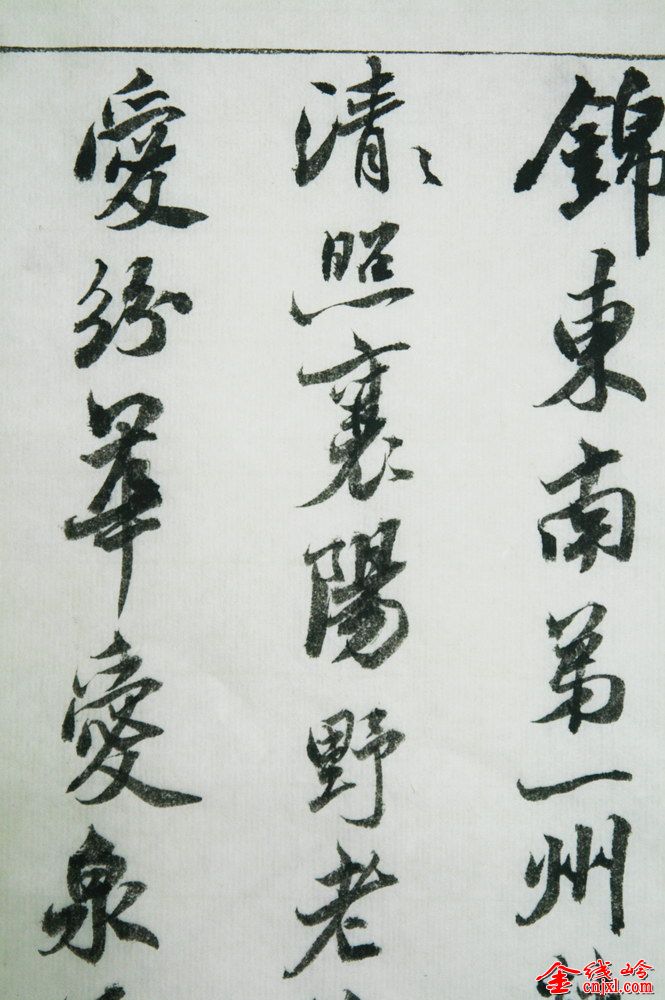 錦東南弟一州
清〻照襄陽野老
愛紛華愛泉
金线岭
cnjxl.com